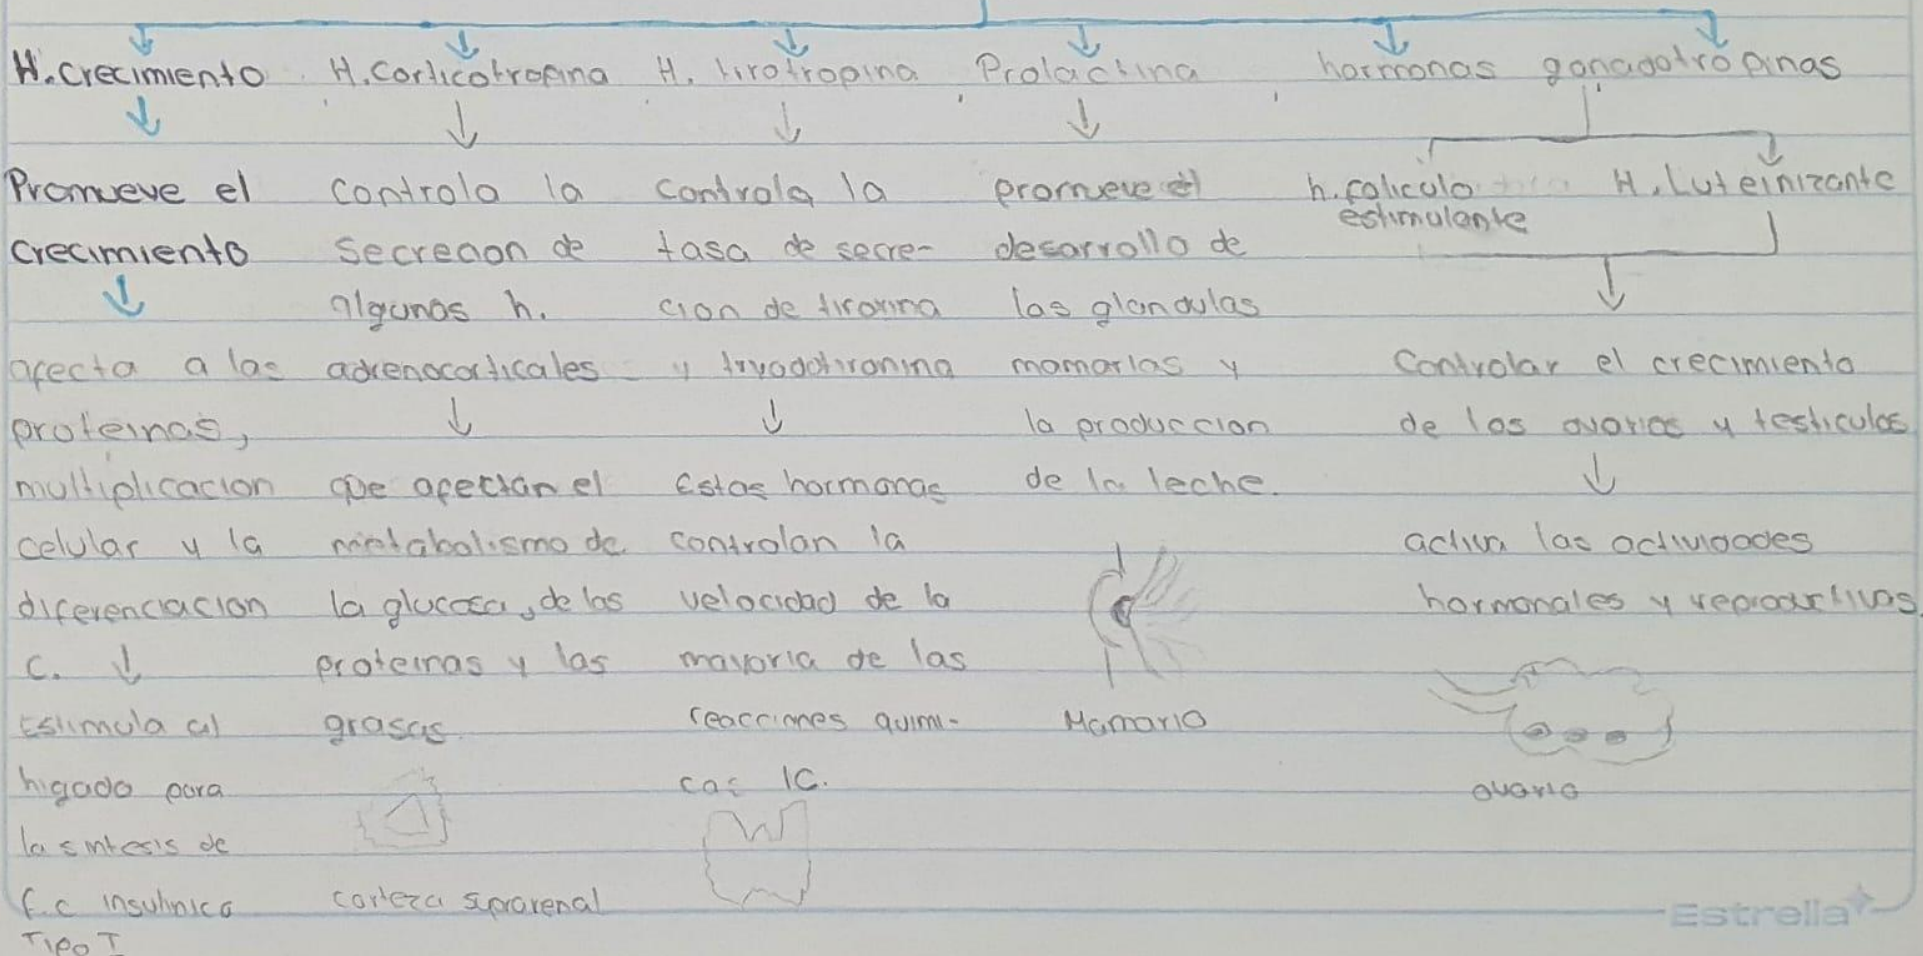 H. Crecimiento
Promueve el
crecimiento
afecta a las
proteinas,
multiplicacion
celular y la
diferenciacion
c.
Estimula al
higado para
la sintesis de
f.c insulinico
Tipo I
H. Corticotropina
controla la
secrecion de
algunas h.
adrenocorticales
que afectan el
metabolismo de
la glucosa, de las
proteinas y las
grasas
corteza suprarenal
H. tirotropina
controla la
tasa de secre-
cion de tiroxina
y tryodotironina
Estas hormonas
controlan la
velocidad de la
mayoria de las
reacciones quimi-
cas IC.
Prolactina
promueve el
desarrollo de
las glandulas
mamarias y
la produccion
de la leche.
Mamario
hormonas gonadotropinas
h. foliculo
estimulante
H. Luteinizante
Controlar el crecimiento
de los ovarios y testiculos
activa las actividades
hormonales y reproductivas
ovario
Estrella